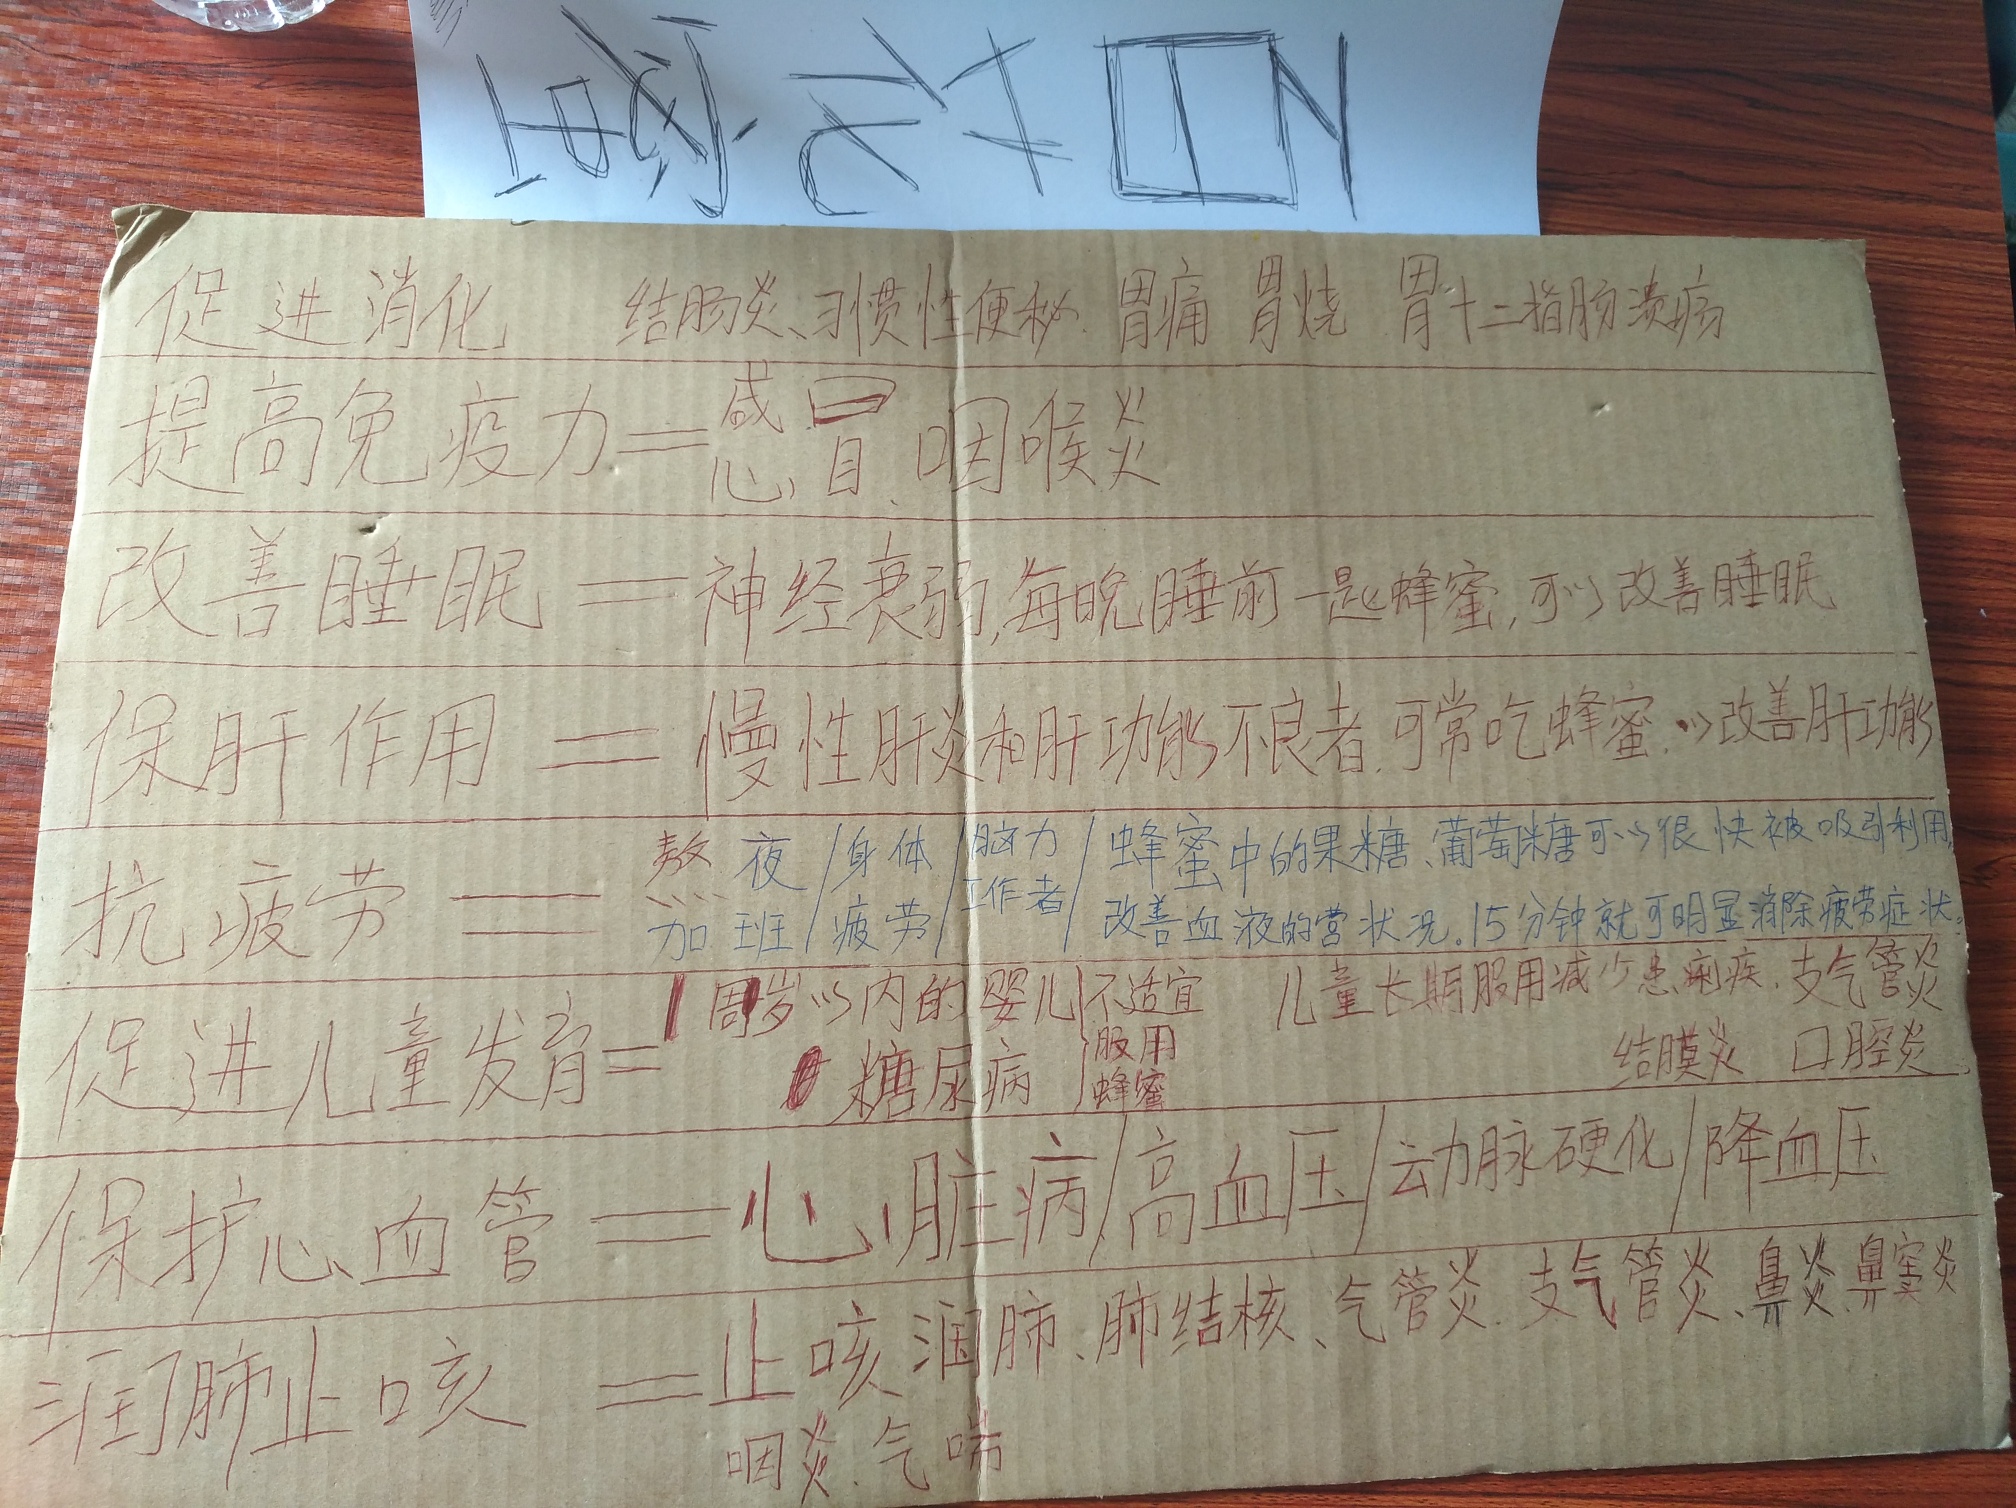 促进消化 结肠炎、习惯性便秘. 胃痛 胃烧 胃十二指肠溃疡
提高免疫力=感冒、咽喉炎
改善睡眠=神经衰弱,每晚睡前一匙蜂蜜,可以改善睡眠
保肝作用=慢性肝炎和肝功能不良者.可常吃蜂蜜.以改善肝功能
抗疲劳=熬夜加班/身体疲劳/脑力工作者/蜂蜜中的果糖、葡萄糖可以很快被吸引利用,
改善血液的营状况。15分钟就可明显消除疲劳症状。
促进儿童发育=1周岁以内的婴儿 不适宜服用蜂蜜 儿童长期服用减少患痢疾.支气管炎
糖尿病 结膜炎 口腔炎
保护心血管=心脏病/高血压/动脉硬化/降血压
润肺止咳=止咳润肺、肺结核、气管炎.支气管炎、鼻炎.鼻窦炎
咽炎.气喘